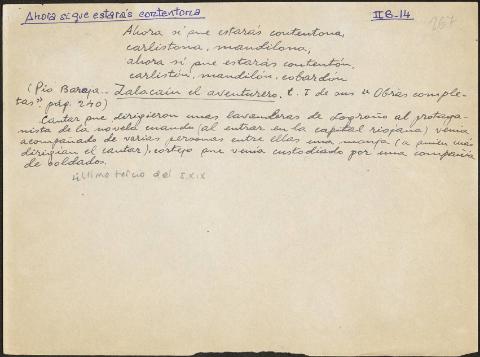 Ahora sí que estarás contentona
IIB-14
267
Ahora sí que estarás contentona,
carlistona, mandilona,
ahora sí que estarás contentón,
carlistón, mandilón, cobardón
(Pío Baroja.- Zalacaín el aventurero, t. I de sus "Obras comple-
tas" pág. 240)
Cantar que dirigieron unas lavanderas de Logroño al protago-
nista de la novela cuando (al entrar en la capital riojana) venía
acompañado de varias personas entre ellas una monja (a quien más
dirigían el cantar), cortejo que venía custodiado por una compañía
de soldados.
último tercio del s. XIX